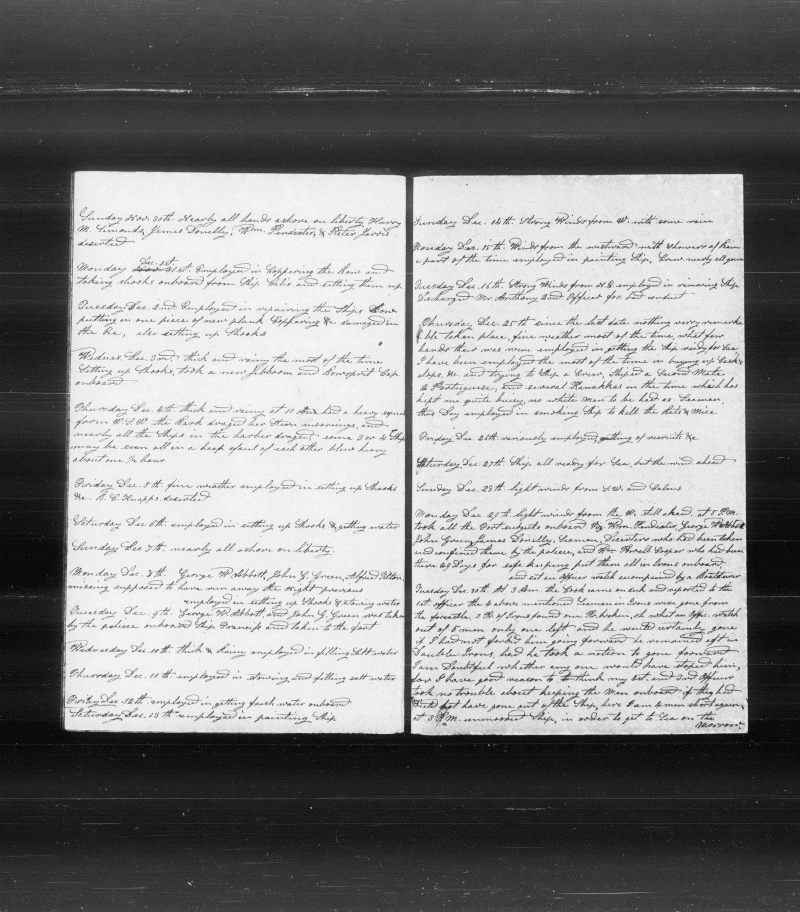 Sunday Nov. 30th. Nearly all hands ashore on liberty Harry
M. Simonds, James Donelly, Wm. Pendexter, & Peter
deserted
Dec. 1st.
Monday 31st. Employed in Coppering the bow and
taking shooks onboard from Ship and setting them up
Tuesday Dec. 2nd Employed in repairing the Ships bow
putting in one piece of new plank Coppering &c. damaged in
the Ice, also setting up Shooks
Wednes. Dec. 3rd thick and rainy the most of the time
Setting up Shooks, took a new Jibboom and Bowsprit Cap
onboard
Thursday Dec. 4th thick and rainy at 10 had a heavy squall
from W.S.W. the Bark draged her moorings, and
nearly all the Ships in the harbor draged some 3 or 4 Ships
may be seen all in a heap afoul of each other blew heavy
about one ½ hour
Friday Dec. 5th fine weather employed in setting up Shooks
&c. Knapp deserted
Saturday Dec 6th employed in setting up Shooks & getting water
Sunday Dec 7th, nearly all ashore on liberty.
Monday Dec. 8th George W. Abbott, John G. Green, Alfred
missing supposed to have run away the night previous
employed in setting up Shooks & stowing water
Tuesday Dec. 9th. George W. Abbott, and John G. Green was taken
by the police onboard Ship and taken to the fort
Wednesday Dec. 10th thick & Rainy employed in filling salt water
Thursday Dec. 11th employed in stowing and filling salt water
Friday Dec. 12th employed in getting fresh water onboard
Saturday Dec. 13th employed in painting Ship
Sunday Dec. 14th. Strong Winds from W. with some rain
Monday Dec. 15th Winds from the westward with showers of Rain
a part of the time employed in painting Ship, Crew nearly all gone
Tuesday Dec. 16th Strong Winds from employed in removing Ship
Discharged Mr. Anthony 2nd Officer for bad conduct
Thursday Dec. 25th since the last date nothing very remarka
ble taken place, fine weather most of the time, what few
hands their was were employed in getting the ship ready for Sea
I have been employed the most of the time in buying up
slops, &c. and trying to Ship a Crew, Shiped a Second Mate
a Portuguese, and several Kanakkas in the time which has
kept me quite busy, no white Men to be had as Seaman,
this Day employed in smoking Ship to kill the Rats & Mice
Friday Dec 26th variously employed, getting of recruits &c
Saturday Dec. 27th Ship all ready for Sea, but the wind ahead
Sunday Dec. 28th light winds from S.W. and Calms
Monday Dec 29th light winds from the W. still ahead, at 5 P.M.
took all the Port subjects onboard viz Wm. Pendexter, George W. Abbott
John Green, James Donelly, Seamen, Deserters who had been taken
and confined them by the police, and Wm Cooper who had been
there 48 Days for safe keeping put them all in Irons onboard
and set an Officer watch accompanied by a Boatsteerer
Tuesday Dec. 30th At 3 Am. the Cook came on deck and reported to the
1st. officer the 4 above mentioned Seamen in Irons was gone from
the forecastle. 3 Pr. of Irons found one Pr. broken, oh what an Offic. watch
out of 5 men only one left and he would certainly gone
if I had not forbid him going forward he remained aft in
Double Irons, had he took a notion to gone forward
I am Doubtful whether any one would have stoped him,
for I have good reason to think my 1st. and 2nd Officers
took no trouble about keeping the Men onboard if they had
not have gone out of the Ship, here I am 4 men short again
at 3 P.M. unmoored Ship, in order to get to Sea on the
Morrow.